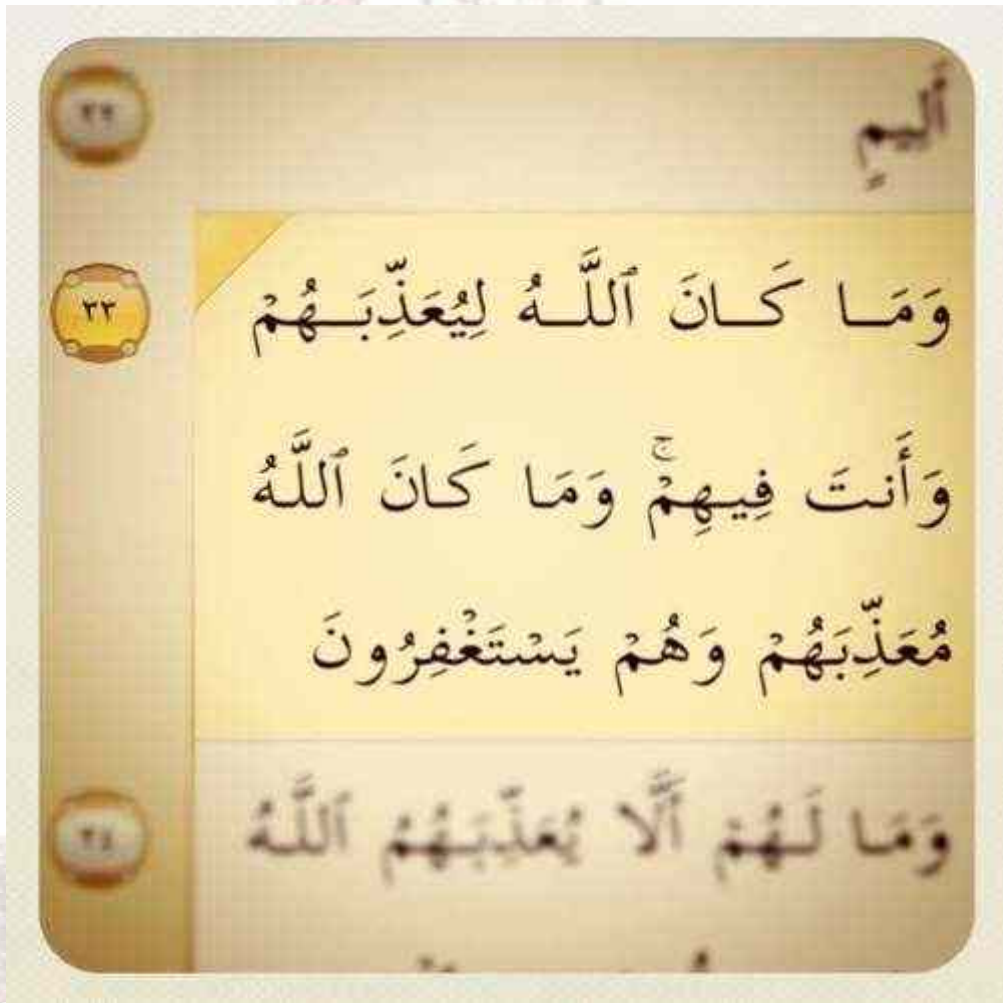 أَلِيمٍ
٣٢
وَمَــا كَــانَ ٱللَّــهُ لِيُعَذِّبَــهُمْ
٣٣
وَأَنتَ فِيهِمْ ۚ وَمَا كَانَ ٱللَّهُ
مُعَذِّبَهُمْ وَهُمْ يَسْتَغْفِرُونَ
وَمَا لَهُمْ أَلَّا يُعَذِّبَهُمُ ٱللَّهُ
٣٤